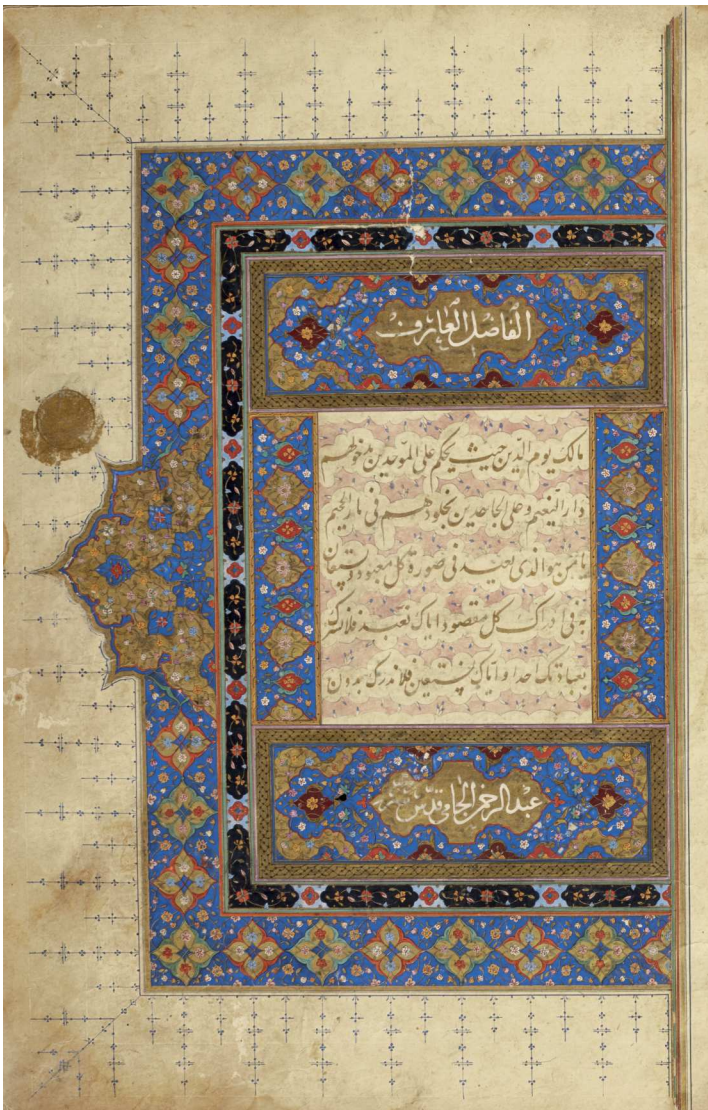 الفاضل العارف
مالک یوم الدین حیث یحکم علی الموحدین بدخولهم
دار النعیم و علی الجاحدین بخلودهم فی نار الجحیم
یا من هو الذی یعبد فی صورة کل معبود و یستعان
به فی ادراک کل مقصود ایاک نعبد فلا نشرک
بعبادتک احدا و ایاک نستعین فلا ندرک بدون
عبد الرحمن الجامی قدس